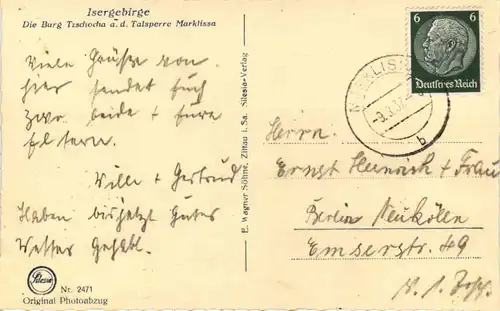 Isergebirge
Die Burg Tzschocha a. d. Talsperre Marklissa
Viele Grüße von
hier sendet Euch
zwr. beide + Eure
Eltern.
Willi + Gertrud
Haben bisjetzt Gutes
Wetter Gehabt.
Silesia
Nr. 2471
Original Photoabzug
E. Wagner Söhne, Zittau i. Sa. Silesia-Verlag
6 6
Deutsches Reich
MARKLISSA
b
Herrn.
Ernst Heinrich + Frau
Berlin Neukölln
Emserstr. 49